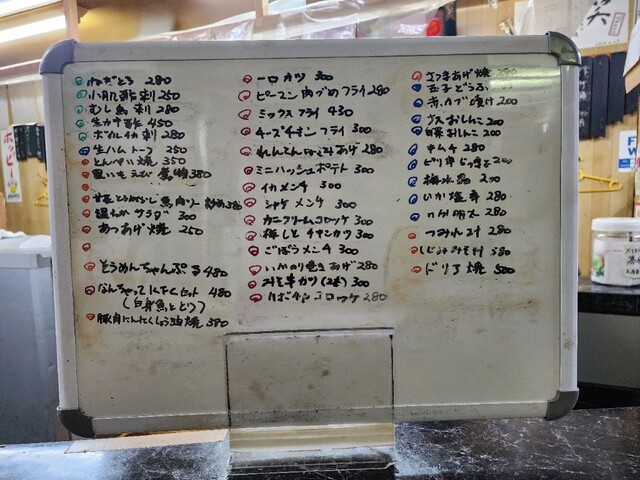 ねぎとろ 280
小肌酢刺 250
むし鳥刺 280
生カキ酢 450
ボイルイカ刺 280
生ハムトーフ 250
とんぺい焼 350
里いもえび 380
甘長とうがらし 鳥肉 炒め 380
温 サラダ 300
あつあげ焼 250
そうめんちゃんぷる 480
なんちゃって 480
(白身魚ととり)
豚肉にんにくしょう油焼 380
一口カツ 300
ピーマン肉づめフライ 280
ミックスフライ 430
チーズチキンフライ 300
れんこんはさみあげ 280
ミニハッシュポテト 300
イカメンチ 300
シャケメンチ 300
カニクリームコロッケ 300
梅しそチキンカツ 300
ごぼうメンチ 300
いかのり巻きあげ 280
みそ串カツ(2本) 300
かぼちゃコロッケ 280
さつまあげ焼 280
玉子どうふ 200
赤カブ漬け 200
ナスおしんこ 200
白菜おしんこ 200
キムチ 280
ピリ辛 200
梅水晶 250
いか塩辛 280
明太 280
つみれ汁 280
しじみみそ汁 380
ドリア焼 500
ホッピー